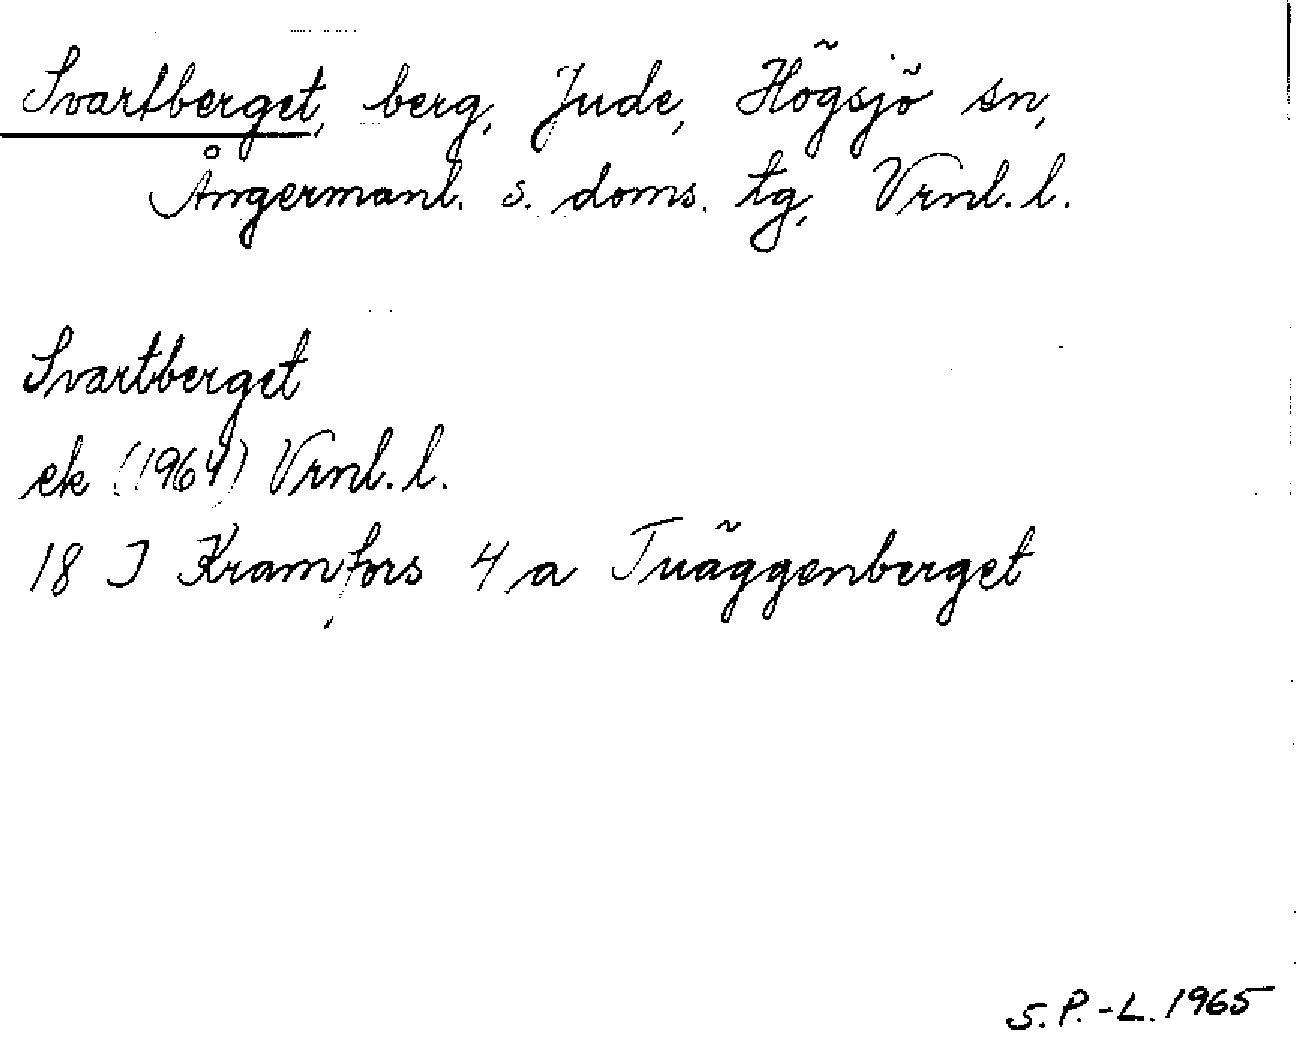 Svartberget, berg, Jude, Högsjö sn,
Ångermanl. s. doms. tg, Vrnl. l.
Svartberget
ek (1964) Vrnl. l.
18 I Kramfors 4 a Tväggenberget
S.P.-L. 1965